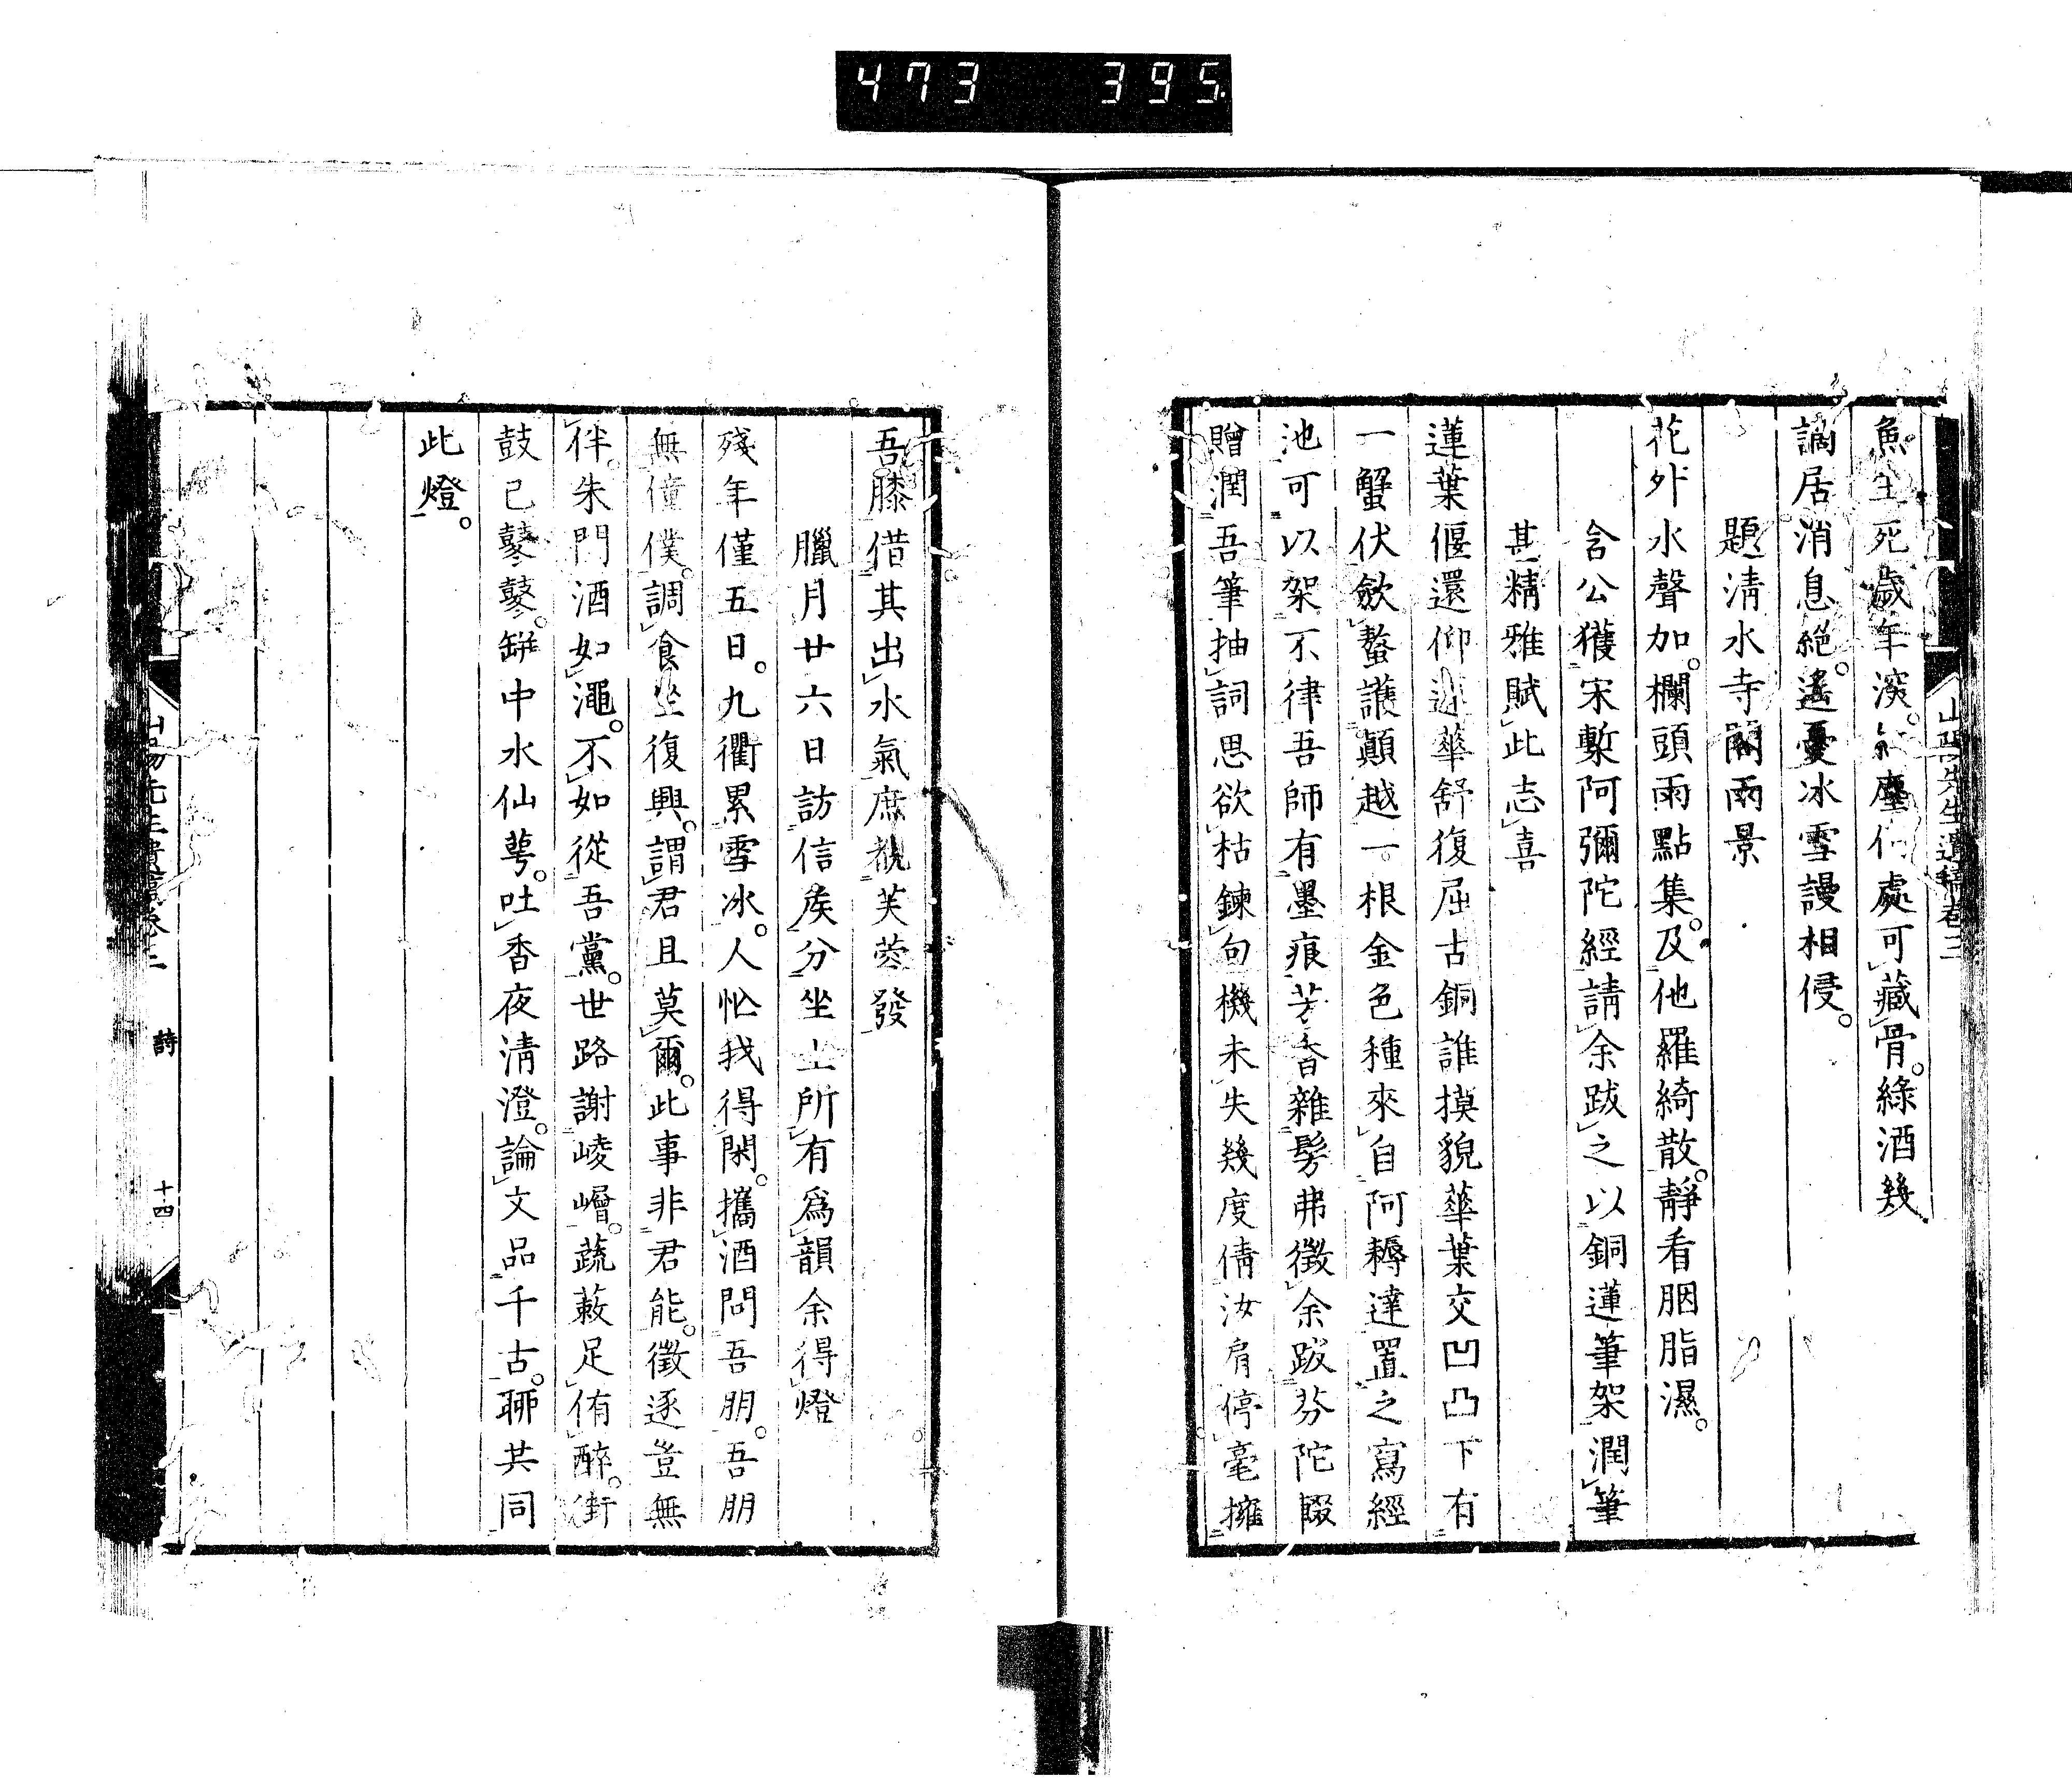 473 395
山陽先生遺稿卷三
魚生死歲年深。紅塵何處可藏骨。綠酒幾
謫居消息絕。遙憂冰雪謾相侵。
題淸水寺閣雨景
花外水聲加。欄頭雨點集。及他羅綺散。靜看胭脂濕。
含公獲宋槧阿彌陀經請余跋之以銅蓮筆架潤筆
甚精雅賦此志喜
蓮葉偃還仰蓮華舒復屈古銅誰摸貌華葉交凹凸下有
一蟹伏斂螯護顚越一根金色種來自阿耨達置之寫經
池可以架不律吾師有墨痕芳香雜髣弗徵余跋芬陀輟
贈潤吾筆抽詞思欲枯鍊句機未失幾度倩汝肩停毫擁
吾膝借其出水氣庶覩芙蓉發
臘月廿六日訪信侯分坐上所有爲韻余得燈
殘年僅五日。九衢累雪冰。人忙我得閑。攜酒問吾朋。吾朋
無僮僕。調食坐復興。謂君且莫爾。此事非君能。徵逐豈無
伴。朱門酒如澠。不如從吾黨。世路謝崚嶒。蔬蔌足侑醉。街
鼓已鼕鼕。缾中水仙萼。吐香夜淸澄。論文品千古。聊共同
此燈。
詩
十四